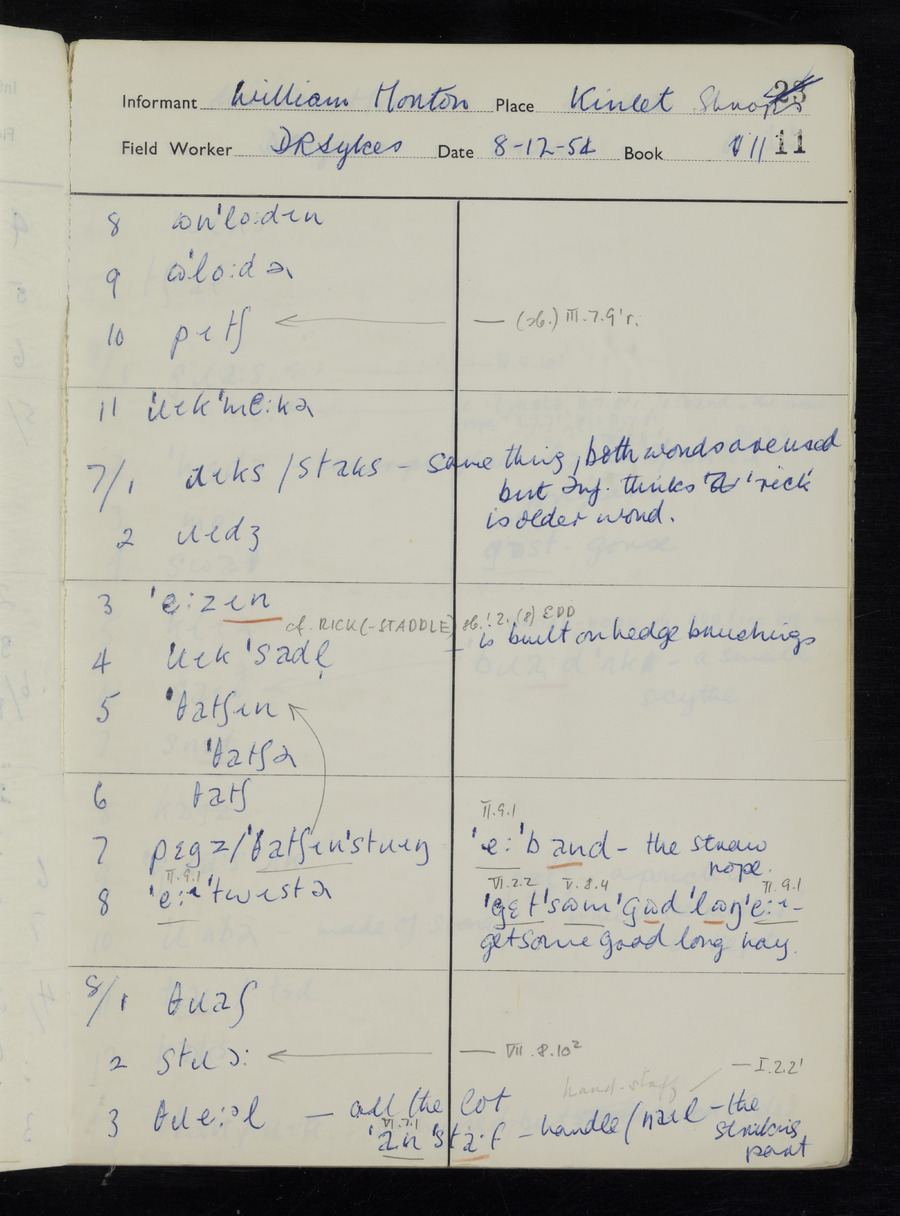 Informant William Horton Place Kinlet Shrops 23
Field Worker DRSykes Date 8-12-54 Book VII 11
8 ɷn'lo:dɪn
9 ɷ'lo:də
10 pɪtʃ ← — (sb.) III.7.9'r.
11 'ɹɪk'me:kə
7/1 ɹɪks / staks – same thing, both words are used
but Inf. thinks 'rick'
is older word.
2 ɹɪdʒ
3 'e:zɪn
cf. RICK(-STADDLE) sb.' 2. (8) EDD
4 'ɹɪk'sadl̩ – is built on hedge brushings
5 'θatʃɪn
'θatʃə
6 θatʃ
7 pɛgz/'θatʃɪn'stɹɪŋ
II.9.1
'e:'band – the straw
rope.
II.9.1
8 'e:ɪ'twɪstə
VI.2.2 V.8.4 II.9.1
'gɛt'sɷm'gɷd'lɷŋ'e:ɪ –
get some good long hay.
8/1 θɹaʃ
2 stɹɔ: ← — VII.8.10²
hand-staff — I.2.2'
3 θɹe:əl – all the lot
VI.7.1
'an'sta:f – handle / flail – the
striking
part